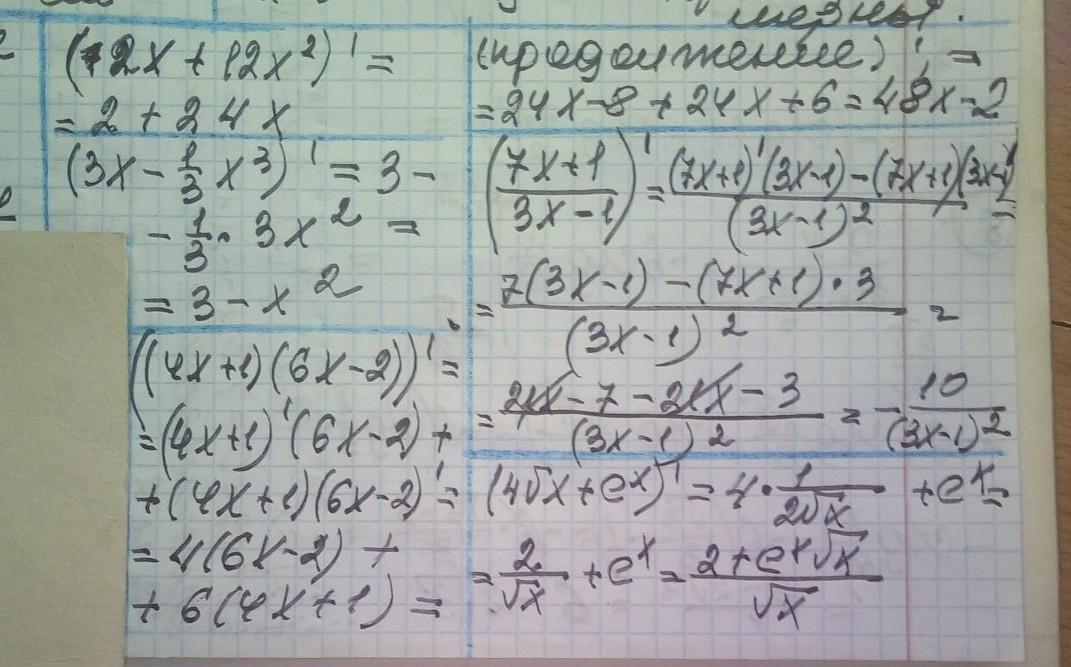 (2x + 12x²)' =
= 2 + 24x
(3x - 1/3 x³)' = 3 -
- 1/3 · 3x² =
= 3 - x²
((4x+1)(6x-2))' =
= (4x+1)'(6x-2) +
+ (4x+1)(6x-2)' =
= 4(6x-2) +
+ 6(4x+1) =
(продолжение) ; =
= 24x - 8 + 24x + 6 = 48x - 2
((7x+1)/(3x-1))' = ((7x+1)'(3x-1) - (7x+1)(3x-1)')/(3x-1)² =
= (7(3x-1) - (7x+1)·3)/(3x-1)² =
= (21x - 7 - 21x - 3)/(3x-1)² = - 10/(3x-1)²
(4√x + eˣ)' = 4 · 1/(2√x) + eˣ =
= 2/√x + eˣ = (2 + eˣ√x)/√x